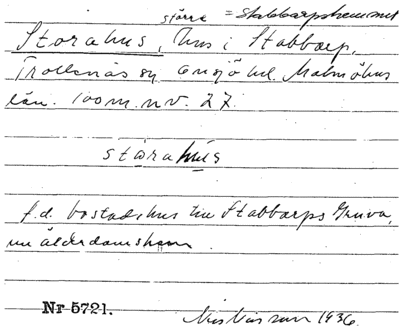 större = Stabbarpshemmet
Storahus, hus i Stabbarp,
Trollenäs sn Onsjö hd. Malmöhus
län. 100 m. n.v. 27.
stòrahùs
f.d. bostadshus till Stabbarps Gruva,
nu ålderdomshem.
Nr 5721.
1936.